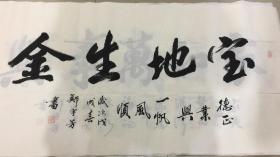 宝地生金
德正
業興
一帆
風順
歲次戊
戌春
鄭宇芳
書